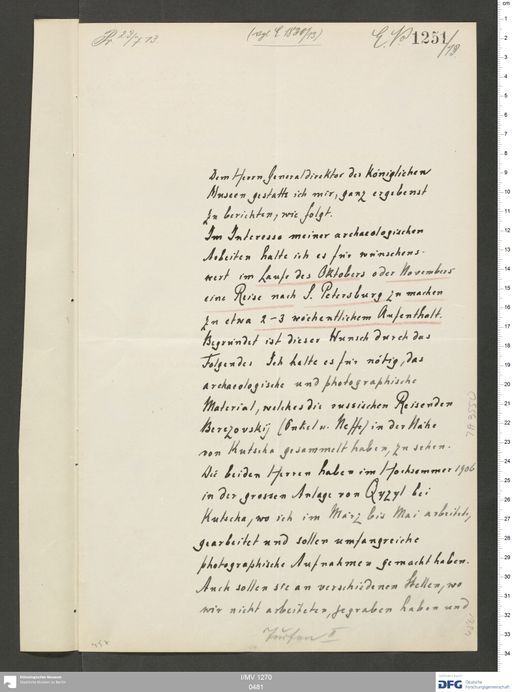 Pr. 23/7 13.
E. No 1251/13
Dem Herrn Generaldirektor der Königlichen
Museen gestatte ich mir, ganz ergebenst
zu berichten, wie folgt.
Im Interesse meiner archaeologischen
Arbeiten halte ich es für wünschens-
wert im Laufe des Oktobers oder Novembers
eine Reise nach S. Petersburg zu machen
zu etwa 2-3 wöchentlichem Aufenthalt.
Begründet ist dieser Wunsch durch das
Folgende: Ich halte es für nötig, das
archaeologische und photographische
Material, welches die russischen Reisenden
Berezovskij (Onkel u. Neffe) in der Nähe
von Kutscha gesammelt haben, zu sehen.
Die beiden Herren haben im Hochsommer 1906
in der grossen Anlage von Qyzyl bei
Kutscha, wo ich im März bis Mai arbeitete,
gearbeitet und sollen umfangreiche
photographische Aufnahmen gemacht haben.
Auch sollen sie an verschiedenen Stellen, wo
wir nicht arbeiteten, gegraben haben und
Turfan II
Ethnologisches Museum
Staatliche Museen zu Berlin
I/MV 1270
0481
DFG Deutsche
Forschungsgemeinschaft